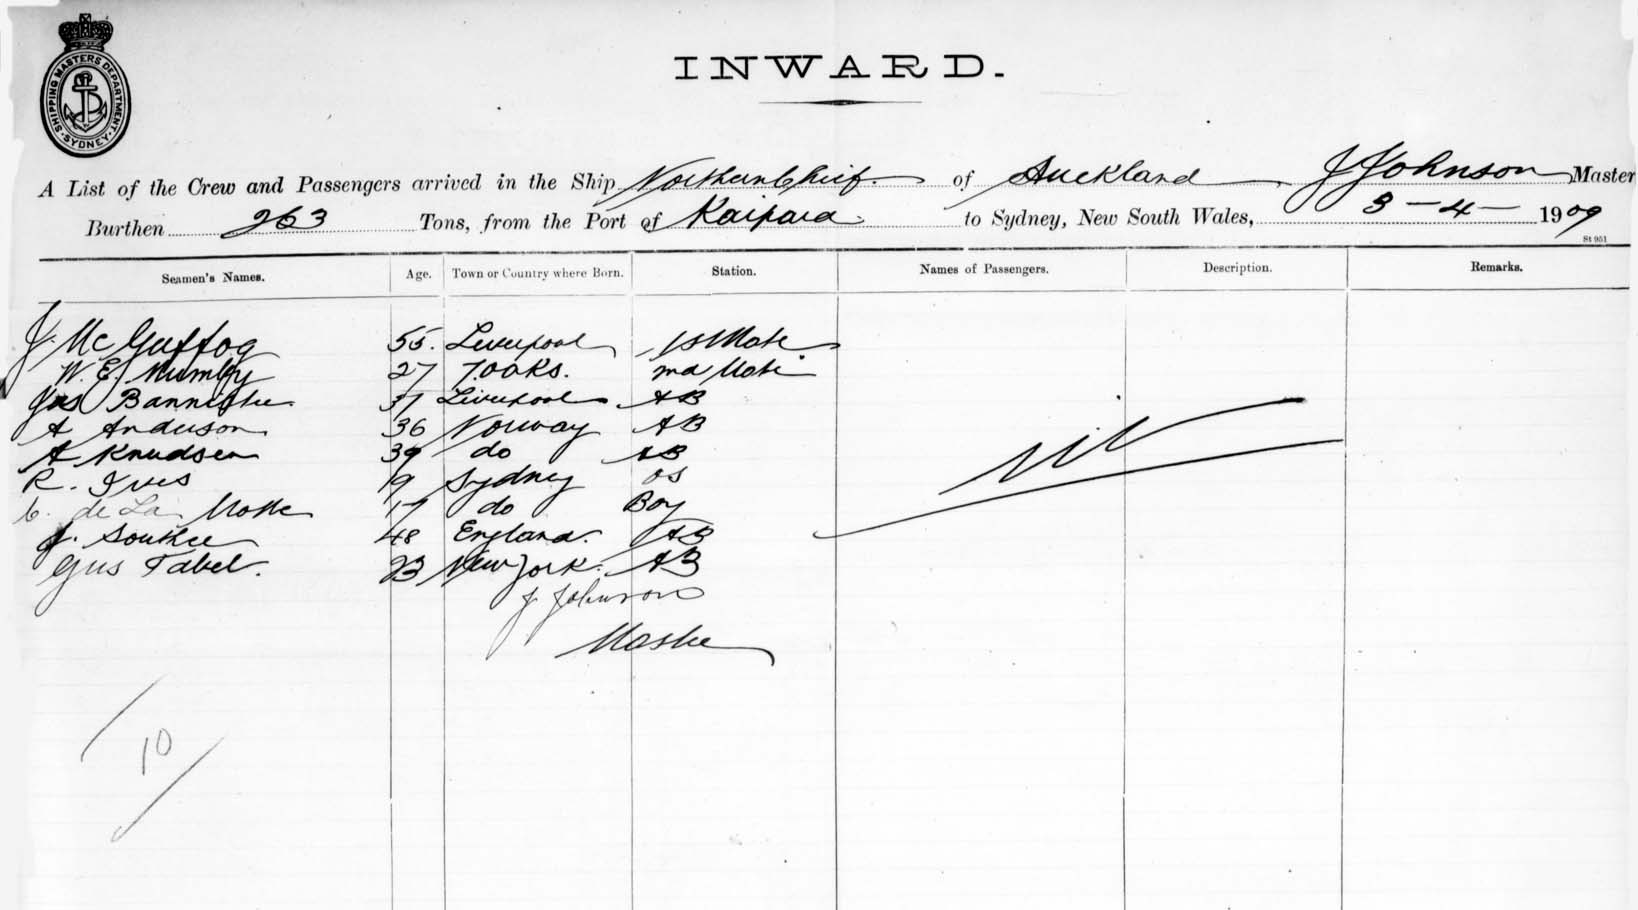 SHIPPING MASTERS DEPARTMENT. SYDNEY.
INWARD.
A List of the Crew and Passengers arrived in the Ship Northern Chief of Auckland J Johnson Master
Burthen 263 Tons, from the Port of Kaipara to Sydney, New South Wales, 3-4-1909
St 951
Seamen's Names. Age. Town or Country where Born. Station. Names of Passengers. Description. Remarks.
J. McGuffog 55. Liverpool 1st Mate
W. E. Mumby 27 2nd Mate
Jas Bannister 37 Liverpool AB
A Anderson 36 Norway AB
A Knudsen 39 do AB
R. Ives 19 Sydney OS
C. de La Motte 17 do Boy
J. Souther 48 England. AB
Gus Tabel. 23 New York. AB
Nil
J Johnson
Master
10